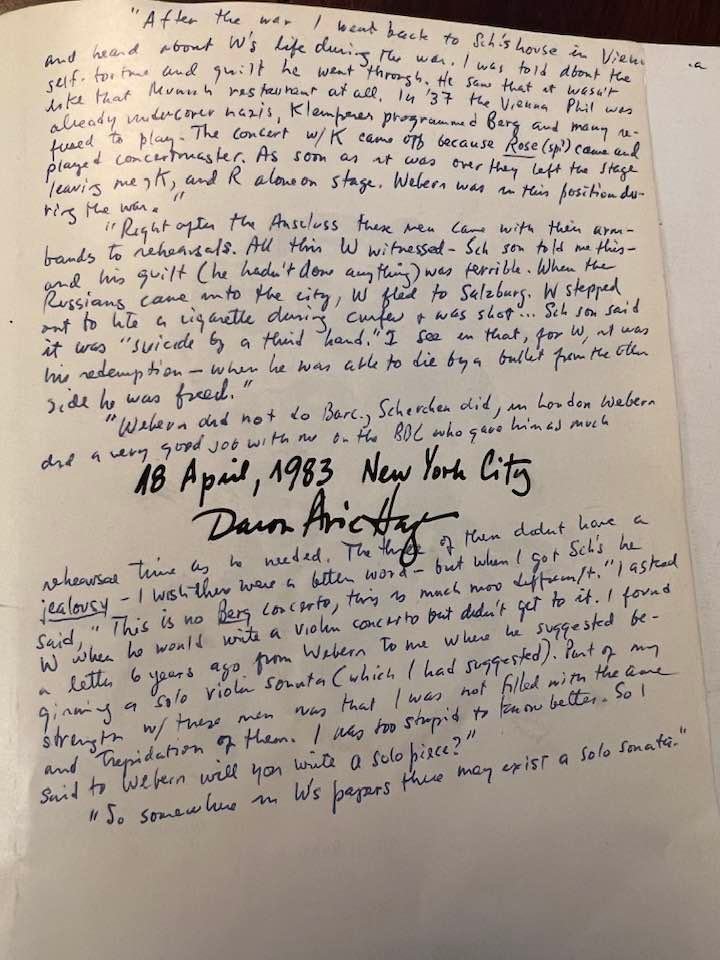 "After the war I went back to Sch's house in Vienn
and heard about W's life during the war. I was told about the
self-torture and guilt he went through. He saw that it wasn't
like that Munich restaurant at all. In '37 the Vienna Phil was
already undercover nazis, Klemperer programmed Berg and many re-
fused to play. The concert w/K came off because Rose (sp?) came and
played concertmaster. As soon as it was over they left the stage
leaving me, K, and R alone on stage. Webern was in this position du-
ring the war."
"Right after the Anscluss these men came with their arm-
bands to rehearsals. All this W witnessed – Sch son told me this –
and his guilt (he hadn't done anything) was terrible. When the
Russians came into the city, W fled to Salzburg. W stepped
out to lite a cigarette during curfew & was shot... Sch son said
it was "suicide by a third hand." I see in that, for W, it was
his redemption – when he was able to die by a bullet from the other
side he was freed."
"Webern did not do Barc., Scherchen did, in London Webern
did a very good job with me on the BBC who gave him as much
18 April, 1983 New York City
Daron Aric Hagen
rehearsal time as he needed. The three of them didnt have a
jealousy – I wish there were a better word – but when I got Sch's he
said, "This is no Berg concerto, this is much moo different." I asked
W when he would write a violin concerto but didn't get to it. I found
a letter 6 years ago from Webern to me where he suggested be-
ginning a solo violin sonata (which I had suggested). Part of my
strength w/ these men was that I was not filled with the awe
and trepidation of them. I was too stupid to know better. So I
said to Webern will you write a solo piece?"
"So somewhere in W's papers there may exist a solo sonata."
.a